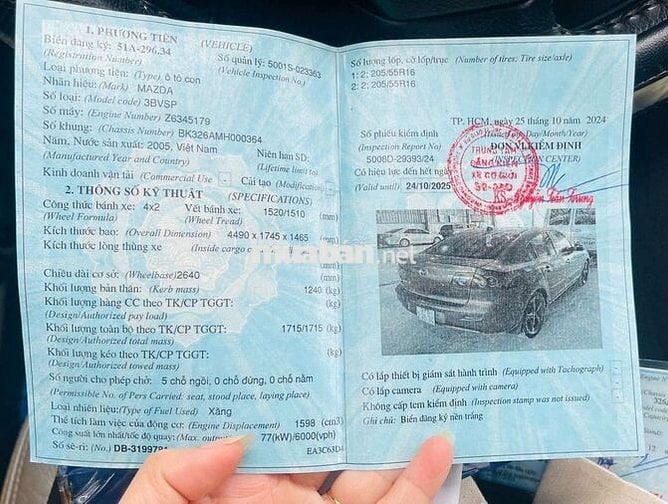 1. PHƯƠNG TIỆN (VEHICLE)
Biển đăng ký: 51A-296.34 Số quản lý: 5001S-023363
(Registration Number) (Vehicle Inspection No.)
Loại phương tiện: (Type) ô tô con
Nhãn hiệu: (Mark) MAZDA
Số loại: (Model code) 3BVSP
Số máy: (Engine Number) Z6345179
Số khung: (Chassis Number) BK326AMH000364
Năm, Nước sản xuất: 2005, Việt Nam Niên hạn SD:
(Manufactured Year and Country) (Lifetime limit to)
Kinh doanh vận tải (Commercial Use) - Cải tạo (Modification) -
2. THÔNG SỐ KỸ THUẬT (SPECIFICATIONS)
Công thức bánh xe: 4x2 Vết bánh xe: 1520/1510 (mm)
(Wheel Formula) (Wheel Tread)
Kích thước bao: (Overall Dimension) 4490 x 1745 x 1465 (mm)
Kích thước lòng thùng xe (Inside cargo (mm)
Chiều dài cơ sở: (Wheelbase) 2640
Khối lượng bản thân: (Kerb mass) 1240 (kg)
Khối lượng hàng CC theo TK/CP TGGT: (kg)
(Design/Authorized pay load)
Khối lượng toàn bộ theo TK/CP TGGT: 1715/1715 (kg)
(Design/Authorized total mass)
Khối lượng kéo theo TK/CP TGGT: (kg)
(Design/Authorized towed mass)
Số người cho phép chở: 5 chỗ ngồi, 0 chỗ đứng, 0 chỗ nằm
(Permissible No. of Pers Carried: seat, stood place, laying place)
Loại nhiên liệu: (Type of Fuel Used) Xăng
Thể tích làm việc của động cơ: (Engine Displacement) 1598 (cm3)
Công suất lớn nhất/tốc độ quay: (Max. output 77(kW)/6000(vph)
Số sê-ri: (No.) DB-319978 EA3C63D4
Số lượng lốp, cỡ lốp/trục (Number of tires; Tire size/axle)
1: 2; 205/55R16
2: 2; 205/55R16
TP. HCM, ngày 25 tháng 10 năm 2024
(Issued on: Day/Month/Year)
Số phiếu kiểm định ĐƠN VỊ KIỂM ĐỊNH
(Inspection Report No) (INSPECTION CENTER)
5008D-29393/24
Có hiệu lực đến hết ngày
(Valid until) 24/10/2025
TRUNG TÂM
ĐĂNG KIỂM
XE CƠ GIỚI
50-08D
Nguyễn Tuấn Trung
muaban.net
Có lắp thiết bị giám sát hành trình (Equipped with Tachograph) -
Có lắp camera (Equipped with camera) -
Không cấp tem kiểm định (Inspection stamp was not issued) -
Ghi chú: Biển đăng ký nền trắng